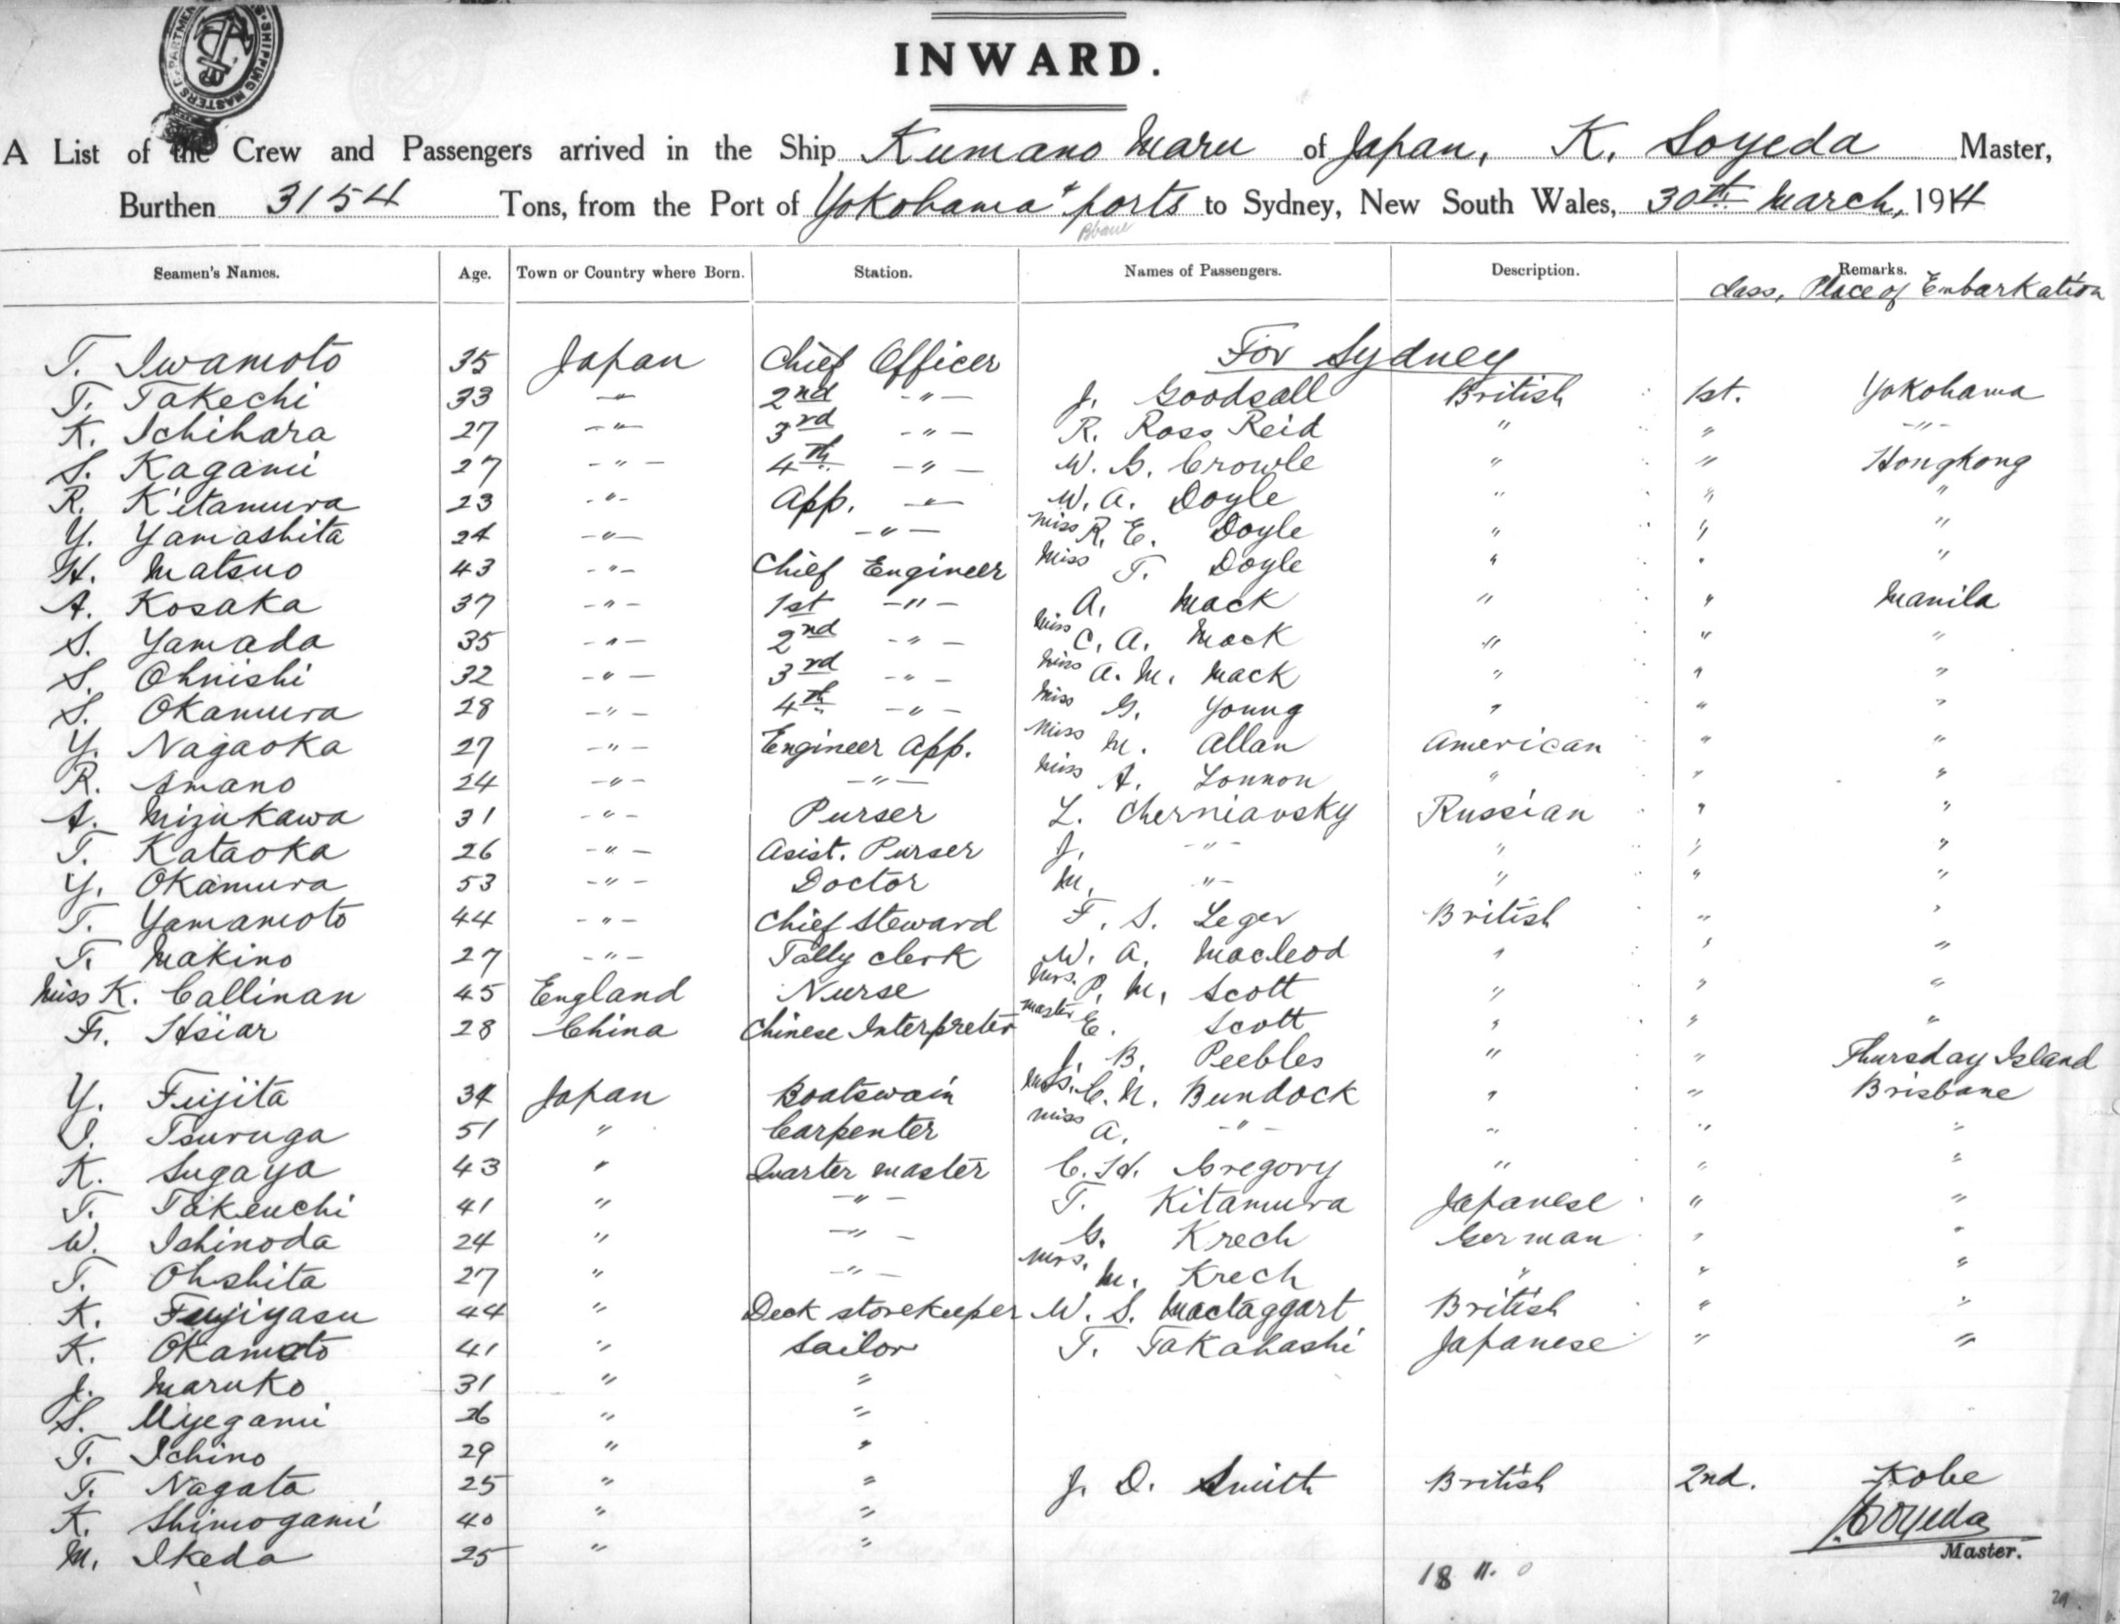 DEPARTMENT SHIPPING MASTERS
INWARD.
A List of the Crew and Passengers arrived in the Ship Kumano Maru of Japan, K. Soyeda Master,
Burthen 3154 Tons, from the Port of Yokohama & ports to Sydney, New South Wales, 30th March, 1914
Bbane
Seamen's Names. Age. Town or Country where Born. Station. Names of Passengers. Description. Remarks.
Class, Place of Embarkation
T. Iwamoto 35 Japan Chief Officer For Sydney
T. Takechi 33 -"- 2nd -"- J. Goodsall British 1st. Yokohama
K. Ichihara 27 -"- 3rd -"- R. Ross Reid " " -"-
S. Kagami 27 -"- 4th -"- W. G. Crowle " " Hongkong
R. Kitamura 23 -"- App. -"- W. A. Doyle " " "
Y. Yamashita 24 -"- -"- Miss R. E. Doyle " " "
H. Matsuo 43 -"- Chief Engineer Miss T. Doyle " " "
A. Kosaka 37 -"- 1st -"- A. Mack " " Manila
S. Yamada 35 -"- 2nd -"- Miss C. A. Mack " " "
S. Ohnishi 32 -"- 3rd -"- Miss A. M. Mack " " "
S. Okamura 28 -"- 4th -"- Miss G. Young " " "
Y. Nagaoka 27 -"- Engineer App. Miss M. Allan American " "
R. Amano 24 -"- -"- Miss A. Lonnon " " "
A. Mizukawa 31 -"- Purser L. Cherniavsky Russian " "
T. Kataoka 26 -"- Asist. Purser J. -"- " " "
Y. Okamura 53 -"- Doctor M. -"- " " "
T. Yamamoto 44 -"- Chief Steward F. S. Leger British " "
T. Makino 27 -"- Tally Clerk W. A. Macleod " " "
Miss K. Callinan 45 England Nurse Mrs. P. M. Scott " " "
F. Hsiar 28 China Chinese Interpreter Master E. Scott " " "
J. B. Peebles " " Thursday Island
Y. Fujita 34 Japan Boatswain Mrs. C. N. Bundock " " Brisbane
I. Tsuruga 51 " Carpenter Miss A. -"- " " "
K. Sugaya 43 " Quarter master C. H. Gregory " " "
T. Takeuchi 41 " -"- T. Kitamura Japanese " "
W. Ichinoda 24 " -"- G. Krech German " "
T. Ohshita 27 " -"- Mrs. M. Krech " " "
K. Fujiyasu 44 " Deck storekeeper W. S. Mactaggart British " "
K. Okamoto 41 " Sailor T. Takahashi Japanese " "
J. Maruko 31 " "
S. Uyegami 26 " "
T. Ichino 29 " "
T. Nagata 25 " " J. D. Smith British 2nd. Kobe
K. Shimogami 40 " " Soyeda
M. Ikeda 25 " " Master.